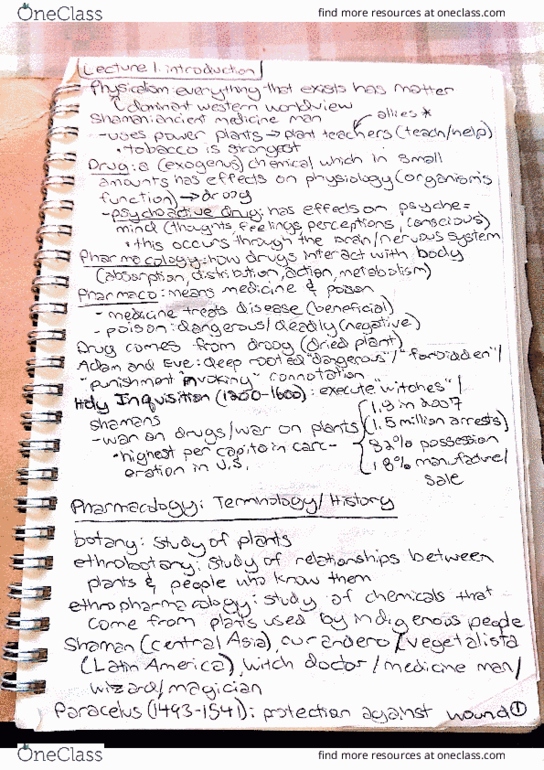 OneClass
find more resources at oneclass.com
Lecture 1: introduction
Physicalism: everything that exists has matter
(dominant western worldview
Shaman: ancient medicine man
allies *
-uses power plants → plant teachers (teach/help)
• tobacco is strongest
Drug: a (exogenus) chemical which in small
amounts has effects on physiology (organism's
function) → droog
-psychoactive drug: has effects on psyche =
mind (thoughts, feelings, perceptions, conscious)
• this occurs through the brain/nervous system
Pharmacology: how drugs interact with body
(absorption, distribution, action, metabolism)
Pharmaco: means medicine & poison
- medicine treats disease (beneficial)
- poison: dangerous/deadly (negative)
Drug comes from droog (dried plant)
Adam and Eve: deep rooted "dangerous"/"forbidden"/
"punishment invoking" connotation
Holy Inquisition (1200-1600): execute "witches"/
shamans
1.9 in 2007
-war on drugs/war on plants
(1.5 million arrests)
• highest per capita incarc-
82% possession
eration in U.S.
18% manufacture/
sale
Pharmacology: Terminology/History
botany: study of plants
ethnobotany: study of relationships between
plants & people who know them
ethnopharmacology: study of chemicals that
come from plants used by indigenous people
Shaman (central Asia), curandero/vegetalista
(Latin America), witch doctor/medicine man/
wizard/magician
Paracelus (1493-1541): protection against wound ①
OneClass
find more resources at oneclass.com